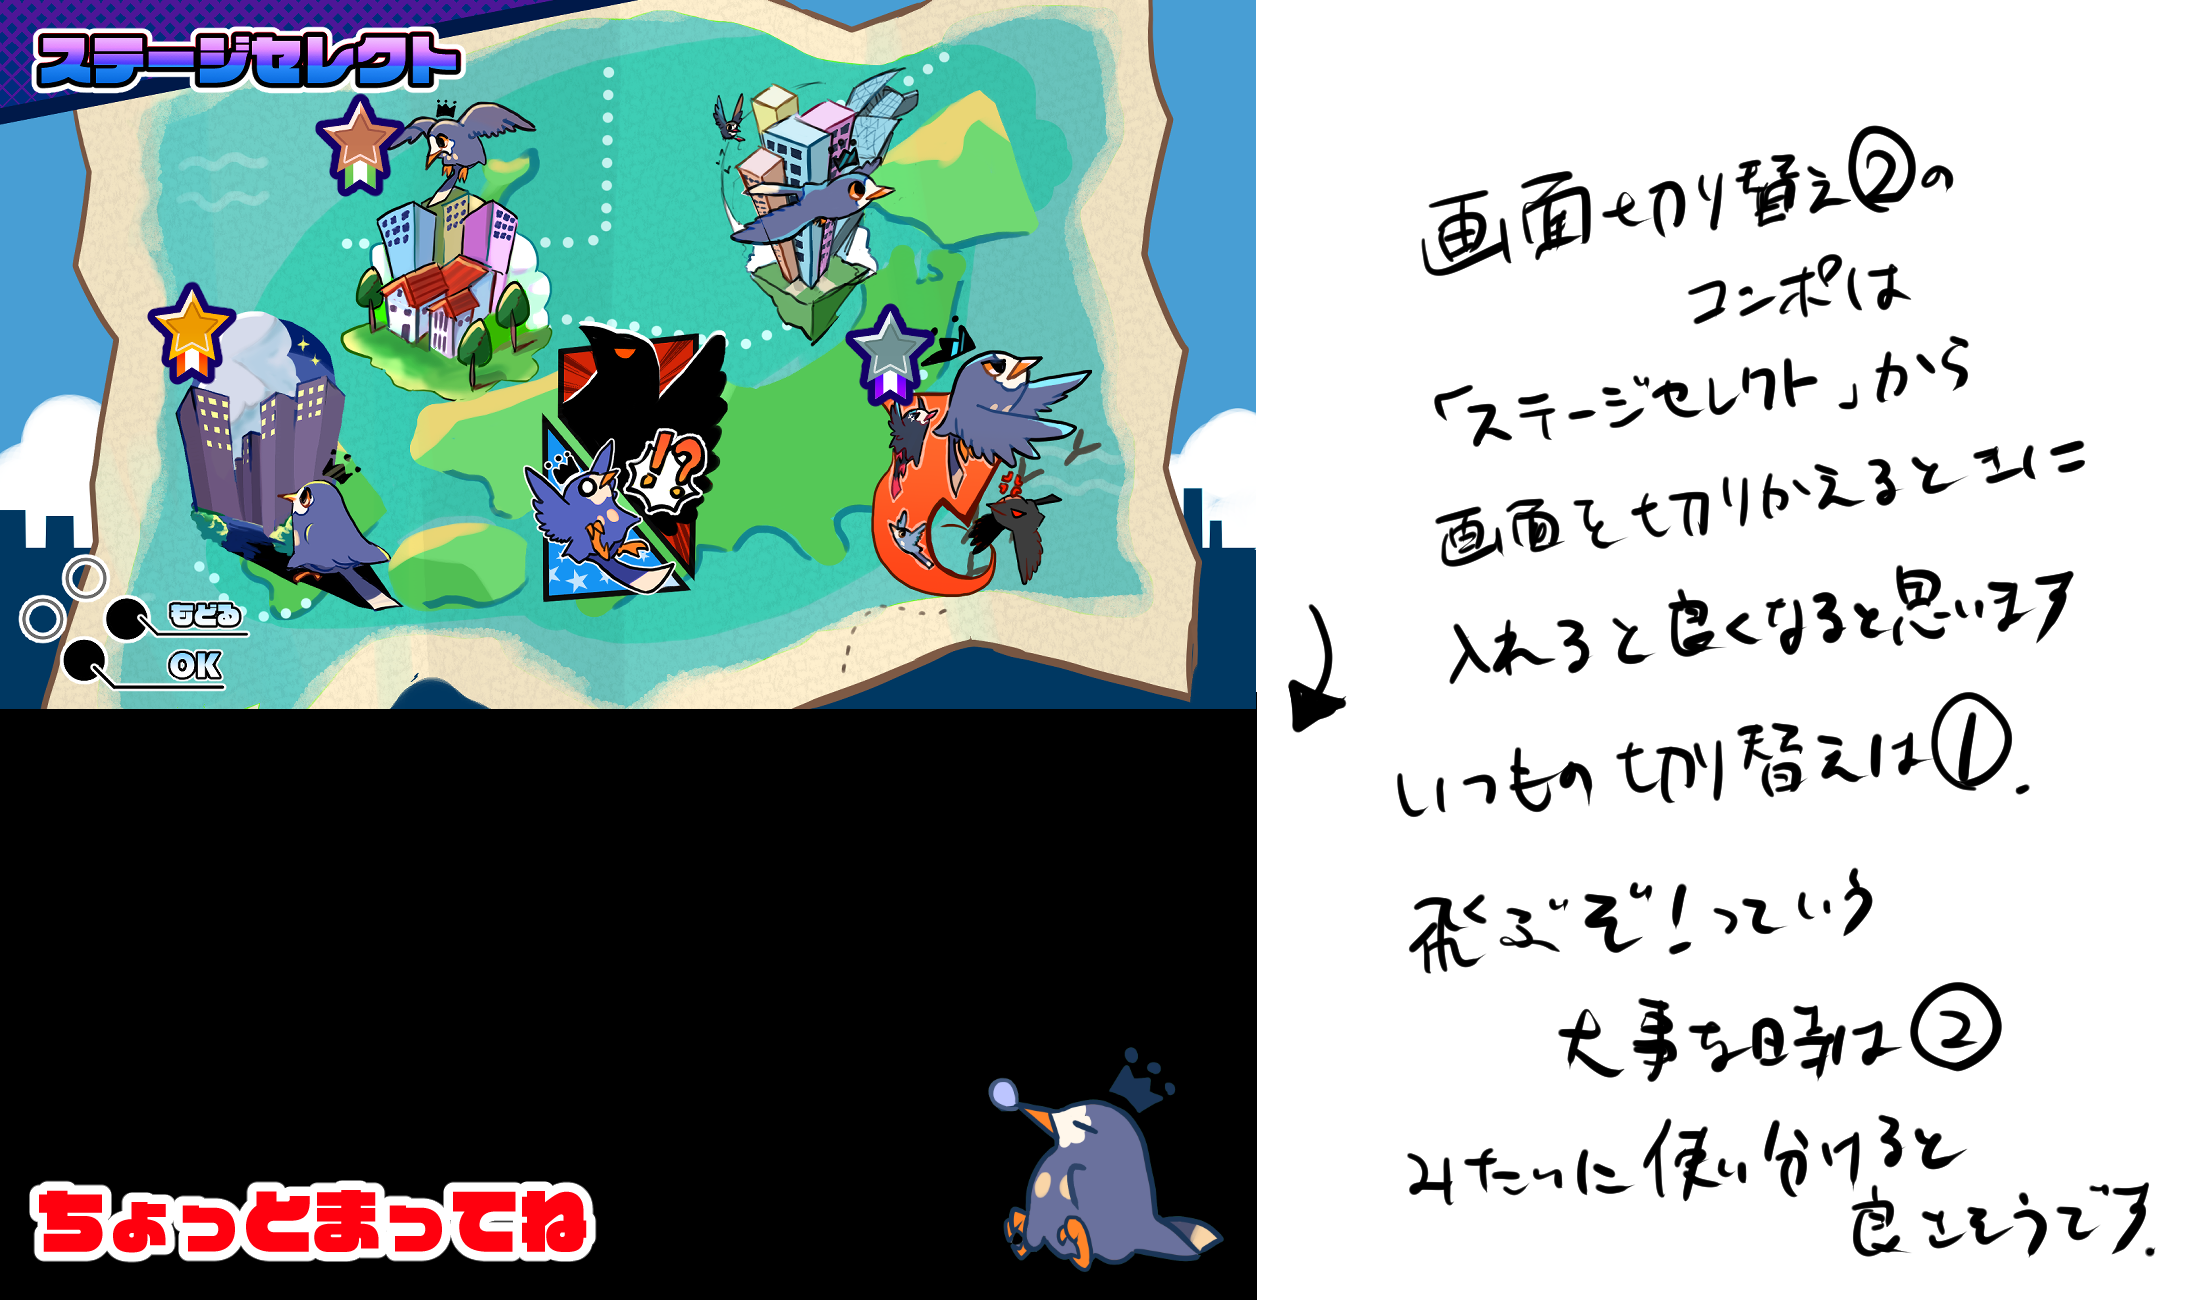 ステージセレクト
!?
もどる
OK
ちょっとまってね
画面切り替え②の
コンポは
「ステージセレクト」から
画面を切りかえるときに
入れると良くなると思います
いつもの切り替えは①.
飛ぶぞ!っていう
大事な時は②
みたいに使い分けると
良さそうです.